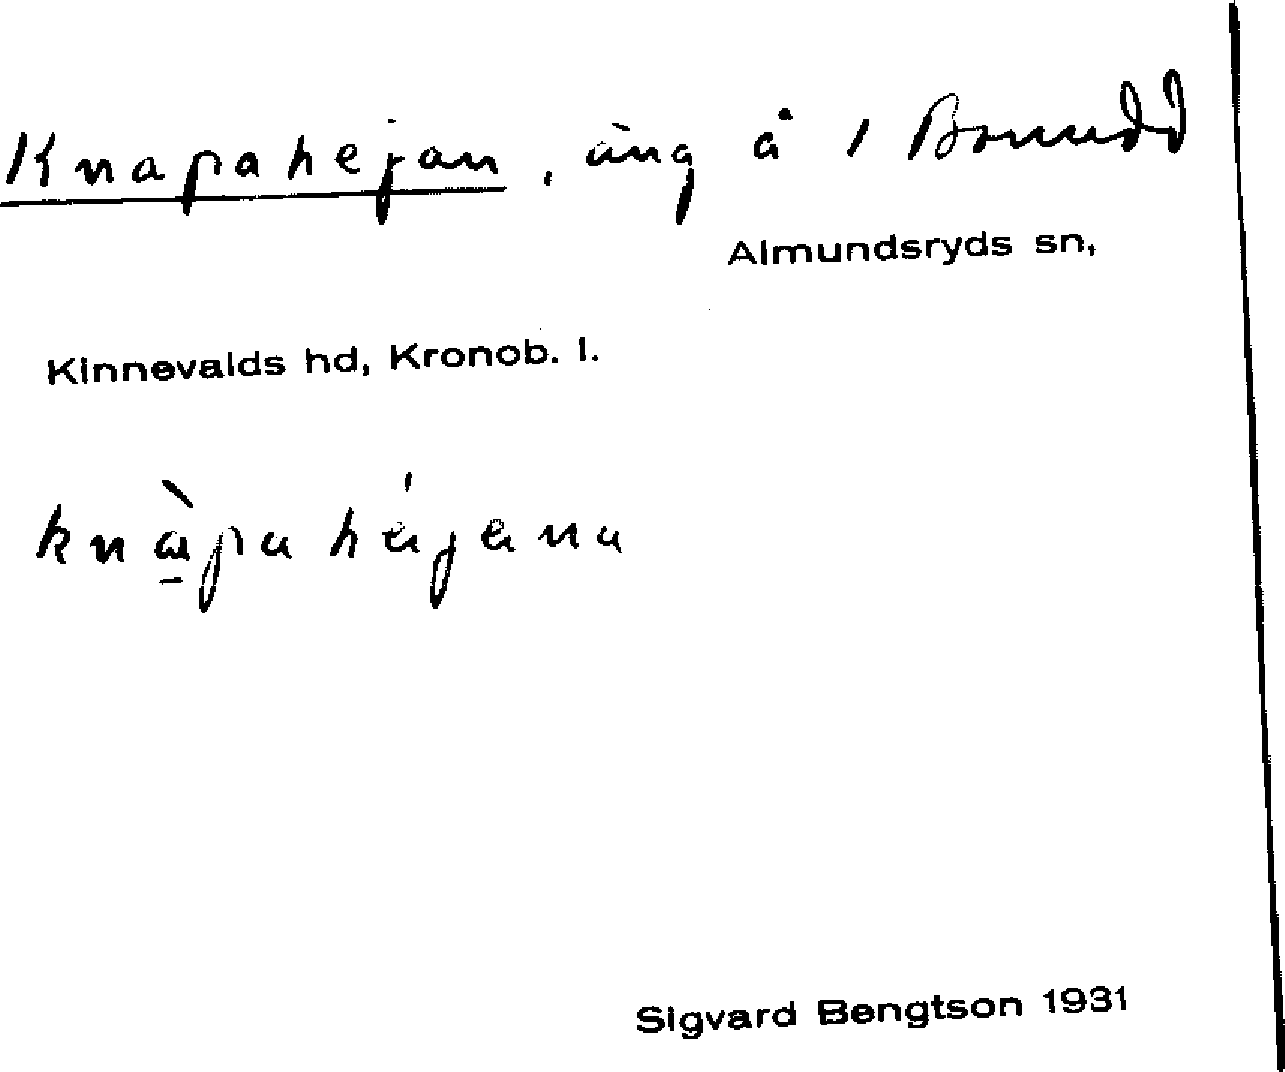 Knapahejan, äng å 1 Bonudd
Almundsryds sn,
Kinnevalds hd, Kronob. l.
knàpa hájana
Sigvard Bengtson 1931